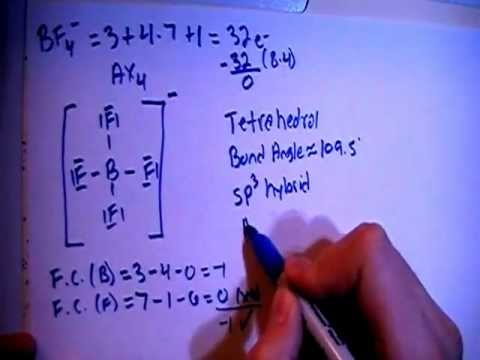 BF₄⁻ = 3+4·7+1 = 32e⁻
-32 (8·4)
0
AX₄
|F̅|
|F̅ - B - F̅|
|F̅|
-
Tetrahedral
Bond Angle ≈ 109.5°
sp³ hybrid
F.C. (B) = 3-4-0 = -1
F.C. (F) = 7-1-6 = 0
-1 ✓